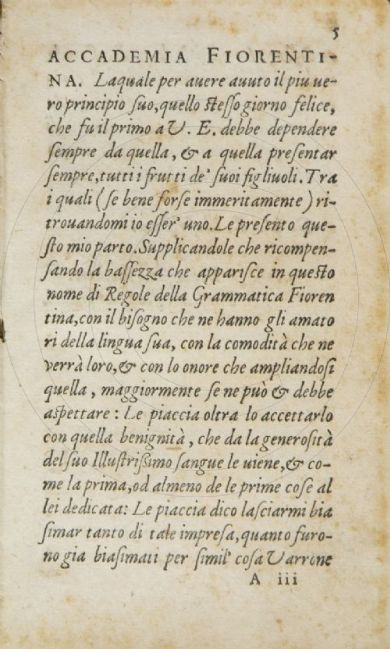 5
ACCADEMIA FIORENTI-
NA. Laquale per avere avuto il piu ve-
ro principio suo, quello stesso giorno felice,
che fu il primo a V. E. debbe dependere
sempre da quella, & a quella presentar
sempre, tutti i frutti de' suoi figliuoli. Tra
i quali (se bene forse immeritamente) ri-
trouandomi io esser' uno. Le presento que-
sto mio parto. Supplicandole che ricompen-
sando la bassezza che apparisce in questo
nome di Regole della Grammatica Fioren
tina, con il bisogno che ne hanno gli amato
ri della lingua sua, con la comodità che ne
verrà loro, & con lo onore che ampliandosi
quella, maggiormente se ne può & debbe
aspettare: Le piaccia oltra lo accettarlo
con quella benignità, che da la generosità
del suo Illustrissimo sangue le uiene, & co-
me la prima, od almeno de le prime cose al
lei dedicata: Le piaccia dico lasciarmi bia
simar tanto di tale impresa, quanto furo-
no gia biasimati per simil' cosa Varrone
A iii